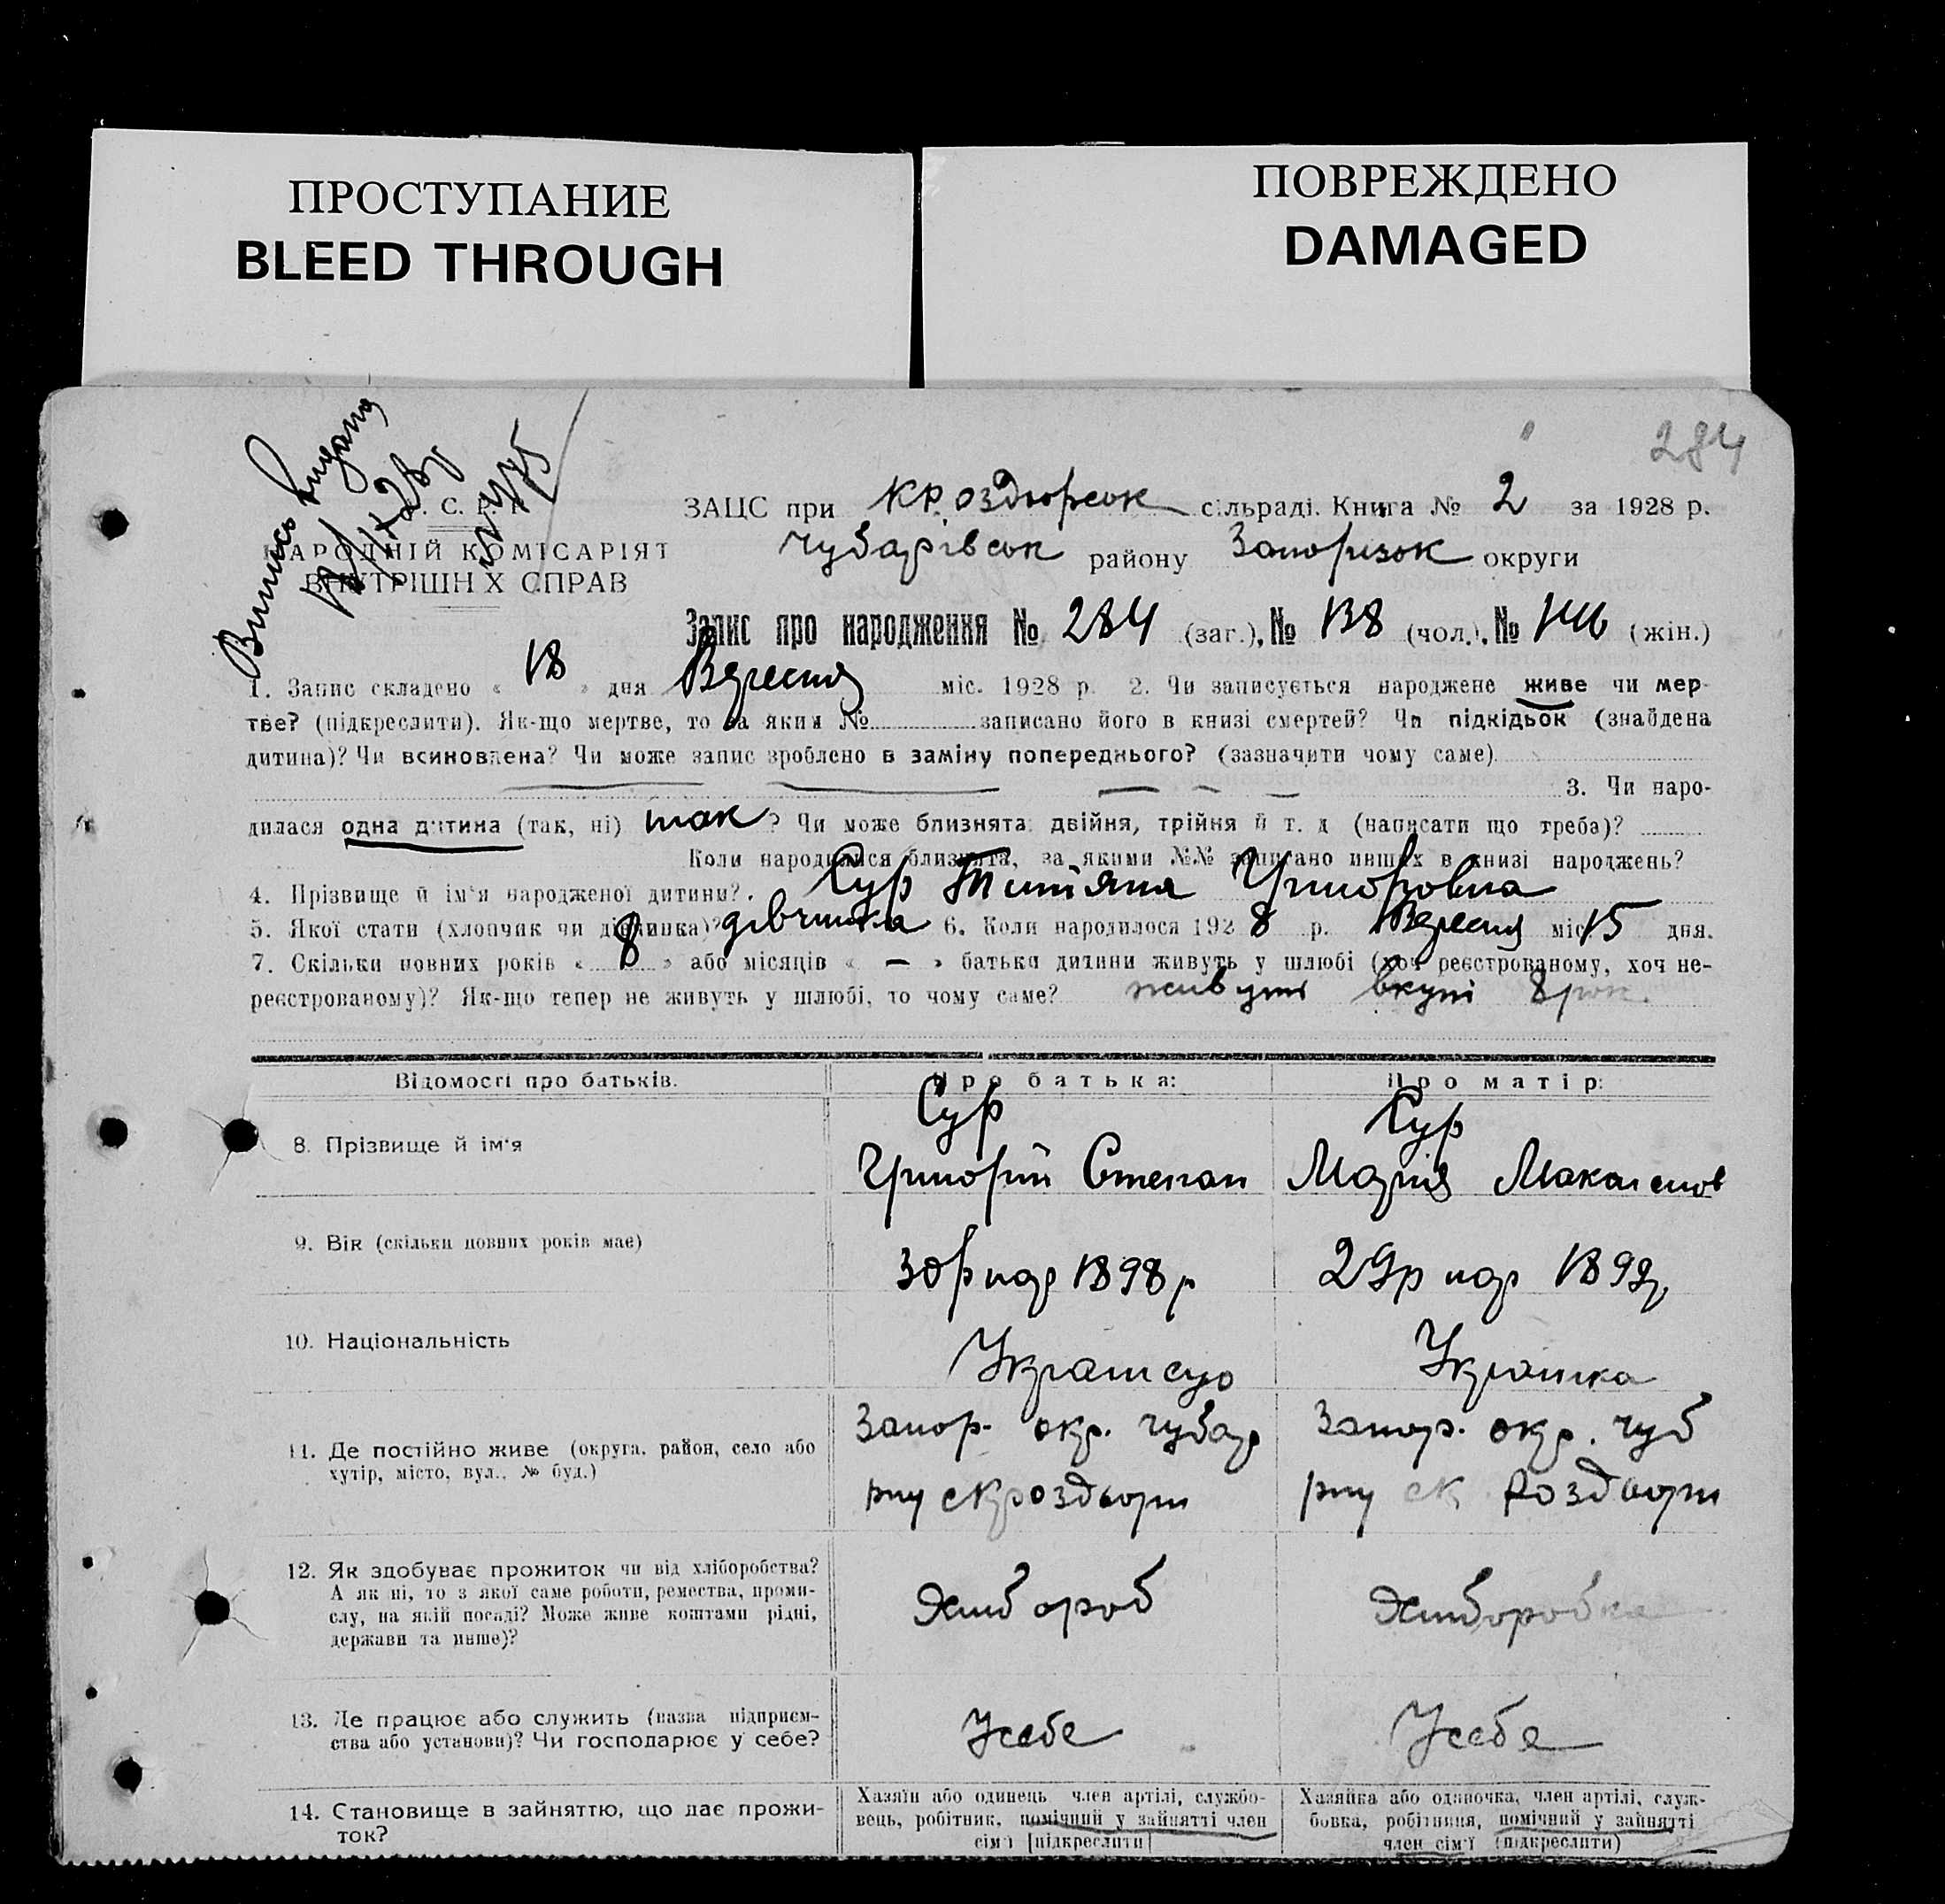 ПРОСТУПАНИЕ
BLEED THROUGH
ПОВРЕЖДЕНО
DAMAGED
284
Випись видана
С. Р. Р.
НАРОДНІЙ КОМІСАРІЯТ
ВНУТРІШНІХ СПРАВ
ЗАЦС при Кр. оздюрсок сільраді. Книга № 2 за 1928 р.
Чубарівсок району Запорізок округи
Запис про народження № 284 (заг.), № 138 (чол.), № 146 (жін.)
1. Запис складено « 18 » дня Вересня міс. 1928 р. 2. Чи записується народжене живе чи мер-
тве? (підкреслити). Як-що мертве, то за яким № записано його в книзі смертей? Чи підкідьок (знайдена
дитина)? Чи всиновлена? Чи може запис зроблено в заміну попереднього? (зазначити чому саме)
3. Чи наро-
дилася одна дитина (так, ні) так ? Чи може близнята: двійня, трійня й т. д. (написати що треба)?
Коли народилися близнята, за якими №№ записано инших в книзі народжень?
4. Прізвище й ім'я народженої дитини? Сур Титіяна Григоровна
5. Якої стати (хлопчик чи дівчинка)? дівчинка 6. Коли народилося 1928 р. Вересня міс. 15 дня.
7. Скільки повних років « 8 » або місяців « — » батьки дитини живуть у шлюбі (хоч реєстрованому, хоч не-
реєстрованому)? Як-що тепер не живуть у шлюбі, то чому саме? живуть вкупі 8 рок.
Відомості про батьків. Про батька: Про матір:
8. Прізвище й ім'я
Сур
Григорій Степан
Сур
Марія Максимов
9. Вік (скільки повних років має)
30 р нар 1898 р
29 р нар 1899 р
10. Національність
Українець
Українка
11. Де постійно живе (округа, район, село або
хутір, місто, вул., № буд.)
Запор. окр. Чубар
рну с Кр оздюри
Запор. окр. Чуб
рну с К Роздюри
12. Як здобуває прожиток чи від хліборобства?
А як ні, то з якої саме роботи, ремества, проми-
слу, на якій посаді? Може живе коштами рідні,
держави та инше)?
Хлібороб
Хлібороб ка
13. Де працює або служить (назва підприєм-
ства або установи)? Чи господарює у себе?
У себе
У себе
14. Становище в зайняттю, що дає прожи-
ток?
Хазяїн або одинець, член артілі, службо-
вець, робітник, помічний у зайнятті член
сім'ї [підкреслити]
Хазяйка або одиночка, член артілі, служ-
бовка, робітниця, помічний у зайнятті
член сім'ї (підкреслити)